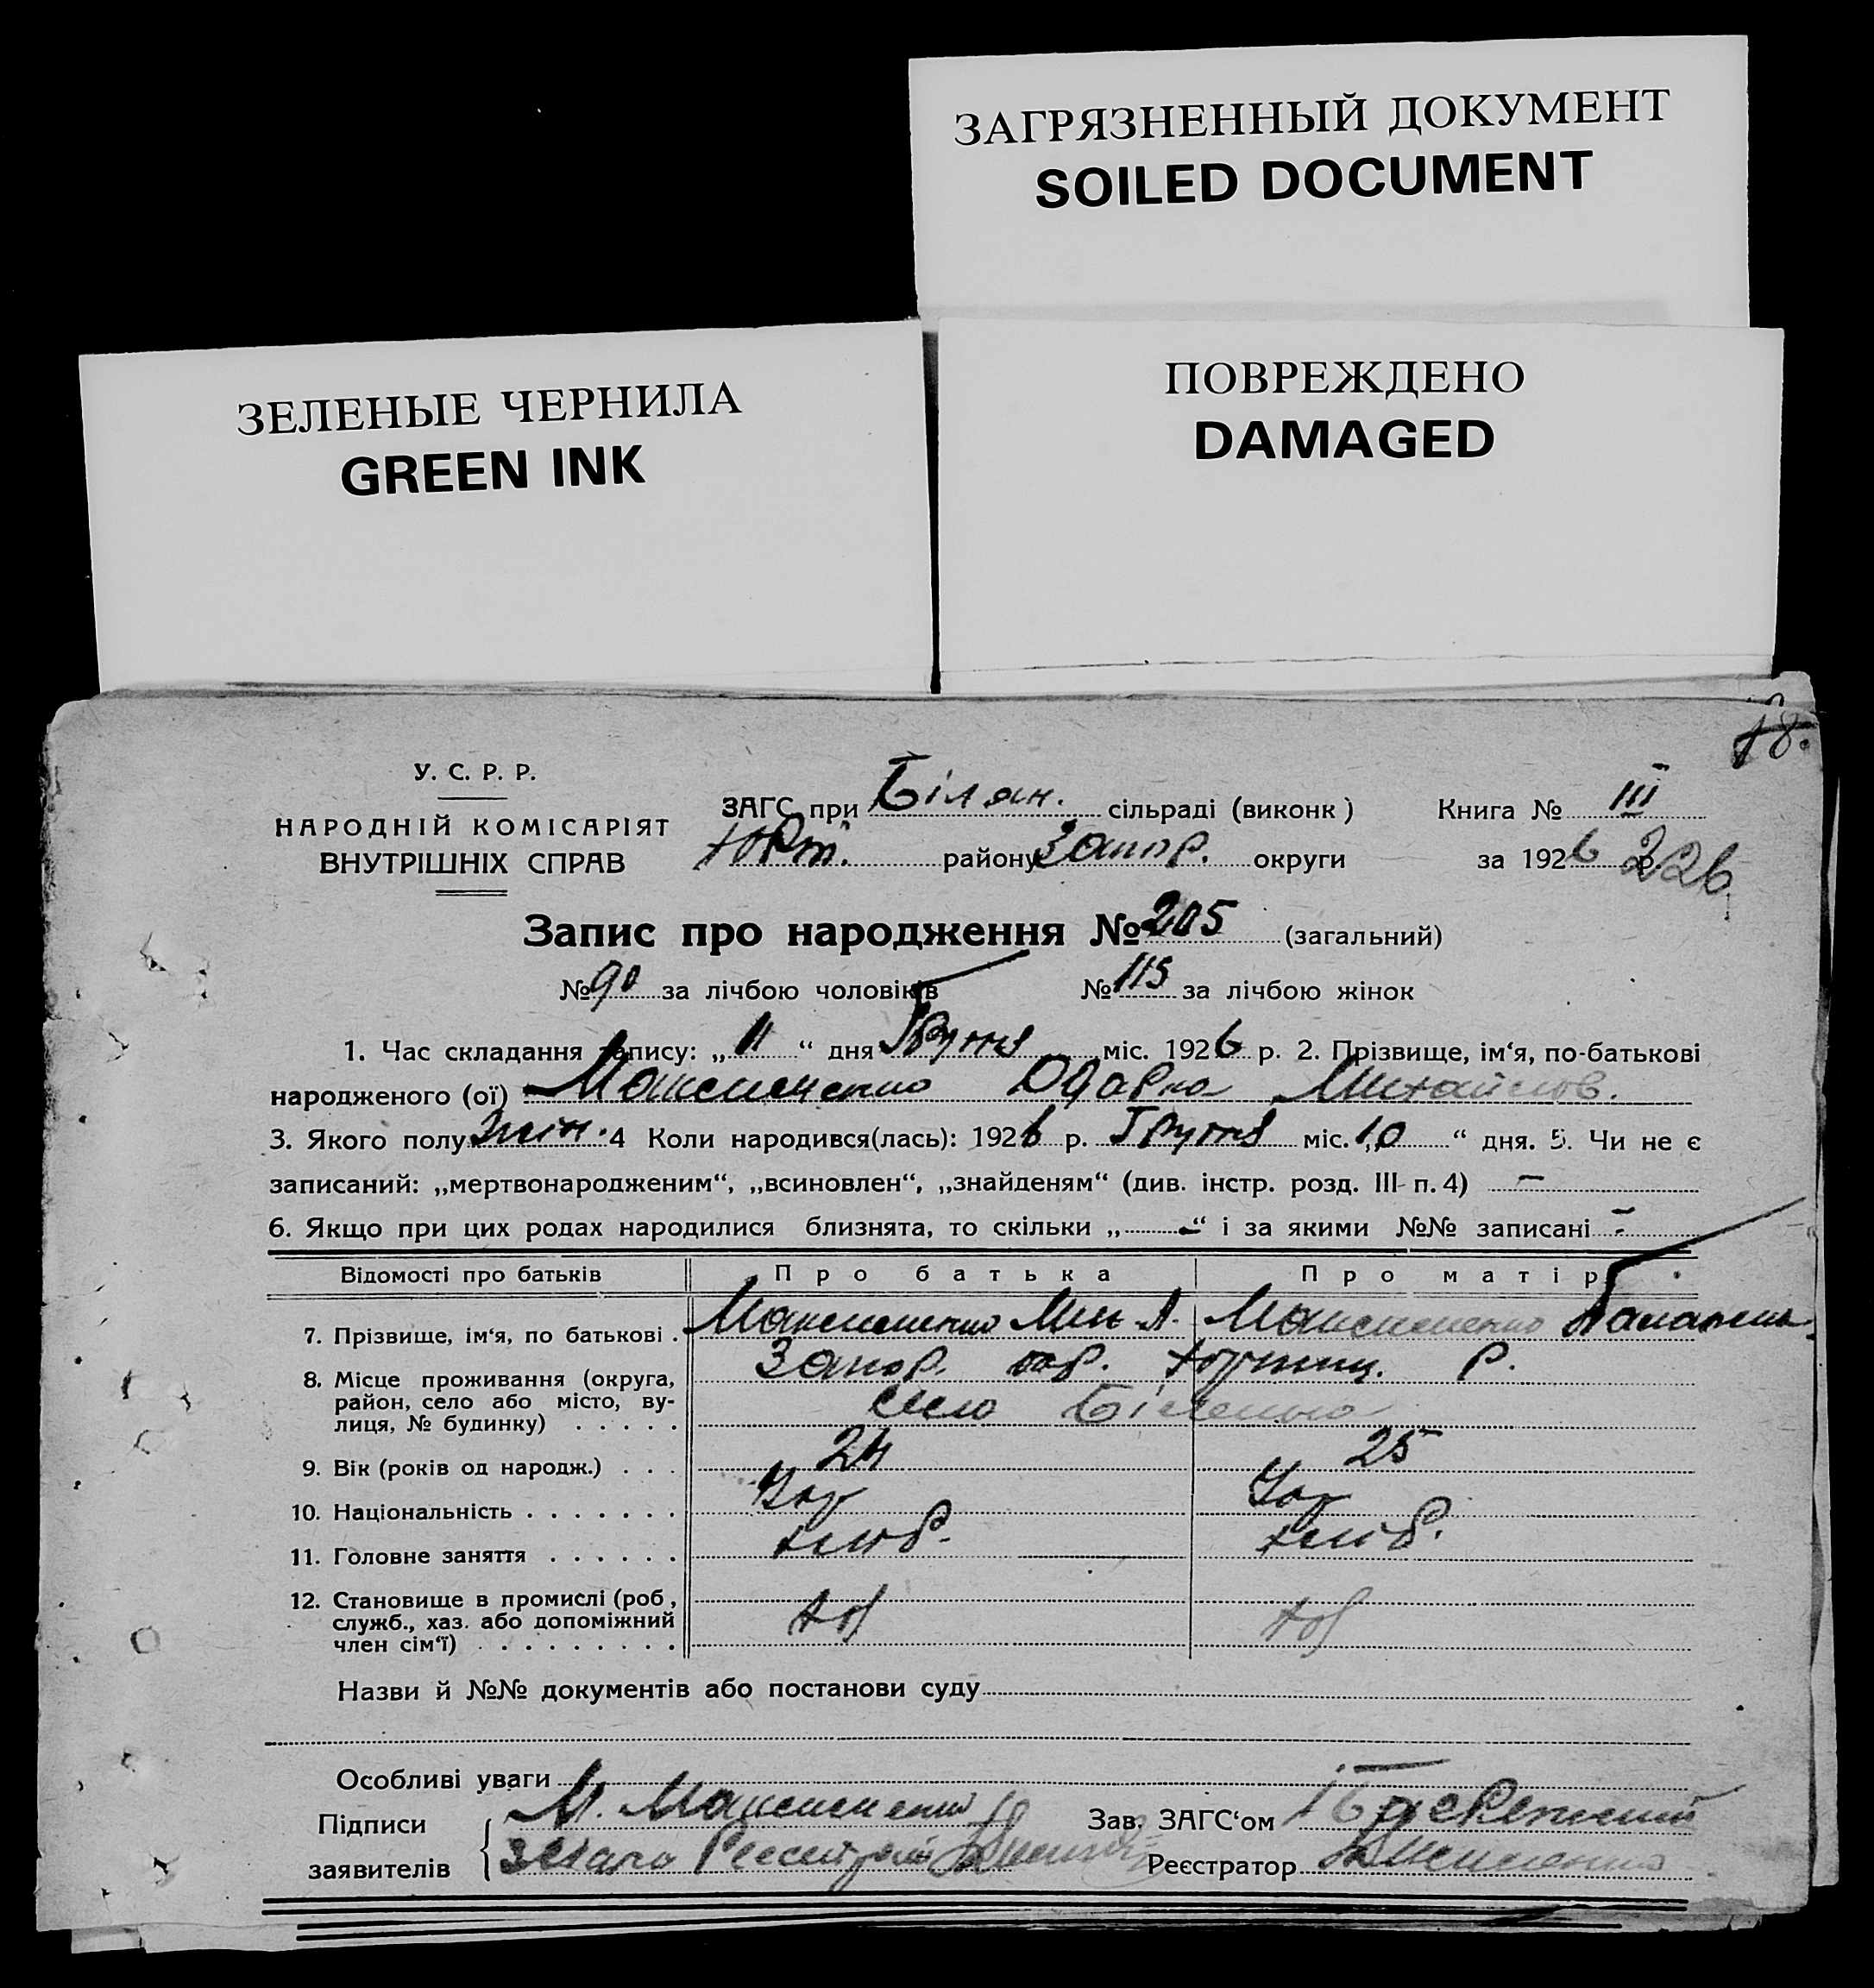 ЗАГРЯЗНЕННЫЙ ДОКУМЕНТ
SOILED DOCUMENT
ЗЕЛЕНЫЕ ЧЕРНИЛА
GREEN INK
ПОВРЕЖДЕНО
DAMAGED
18.
У. С. Р. Р.
НАРОДНІЙ КОМІСАРІЯТ
ВНУТРІШНІХ СПРАВ
ЗАГС при Білян. сільраді (виконк) Книга № III
району Запор. округи за 1926 р. 226
Запис про народження № 205 (загальний)
№ 90 за лічбою чоловіків № 115 за лічбою жінок
1. Час складання запису: „ 11 “ дня Грудня міс. 1926 р. 2. Прізвище, ім‘я, по-батькові
народженого (ої) Максименко Одарка Михайлов.
3. Якого полу жін. 4 Коли народився(лась): 1926 р. Грудня міс. „10 “ дня. 5. Чи не є
записаний: „мертвонародженим“, „всиновлен“, „знайденям“ (див. інстр. розд. III п. 4) —
6. Якщо при цих родах народилися близнята, то скільки „ — “ і за якими №№ записані -
Відомості про батьків Про батька Про матір
7. Прізвище, ім‘я, по батькові . Максименко Мих. Л. Максименко
8. Місце проживання (округа, Запор. окр. Хортиц. р.
район, село або місто, ву- село Біленьке
лиця, № будинку) . . . . .
9. Вік (років од народж.) . . . 24 25
10. Національність . . . . . . . Укр Укр
11. Головне заняття . . . . . . хліб. хліб.
12. Становище в промислі (роб,
служб., хаз. або допоміжний хоз хоз
член сім‘ї) . . . . . . . . .
Назви й №№ документів або постанови суду
Особливі уваги
Підписи М. Максименко Зав. ЗАГС‘ом
заявителів Реєстратор